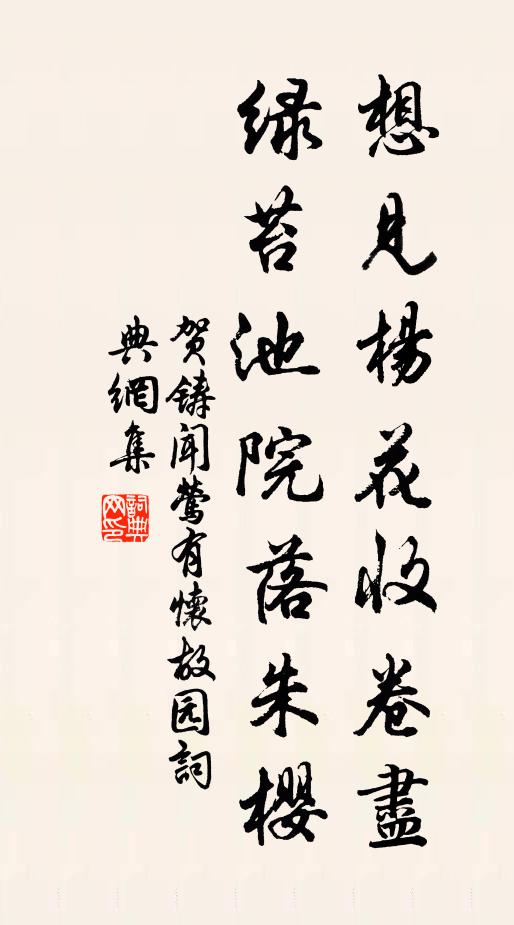 想见楊花收卷盡
绿苔池院落朱櫻
贺鑄闻鶯有懷故园詞
典網集
詞典
网印